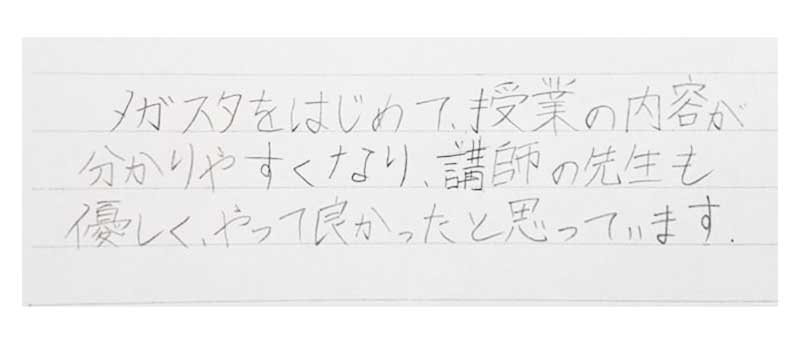 メガスタをはじめて、授業の内容が
分かりやすくなり、講師の先生も
優しく、やって良かったと思っています.